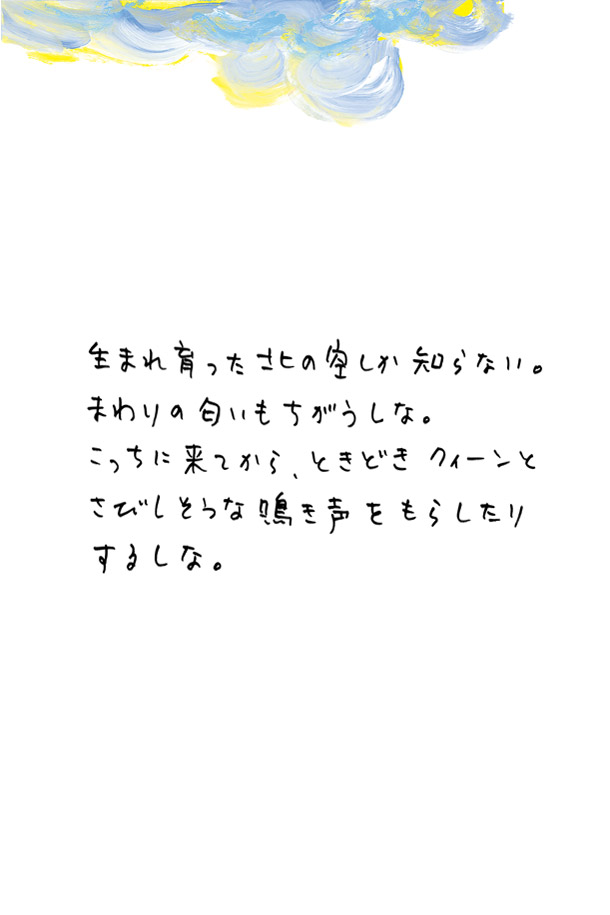 生まれ育った北の空しか知らない。
まわりの匂いもちがうしな。
こっちに来てから、ときどきクィーンと
さびしそうな鳴き声をもらしたり
するしな。